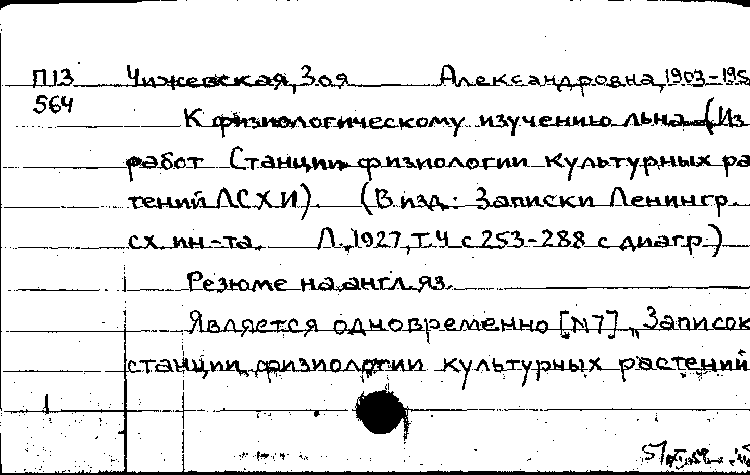 П13 Чижевская, Зоя Александровна, 1903-195
564
К физиологическому изучению льна. (Из
работ Станции физиологии культурных ра
тений ЛСХИ). (В изд.: Записки Ленингр.
сх. ин-та. Л., 1927, т. 4 с 253-288 с диагр.)
Резюме на англ. яз.
Является одновременно [N7] „Записок
станции физиологии культурных растений
1